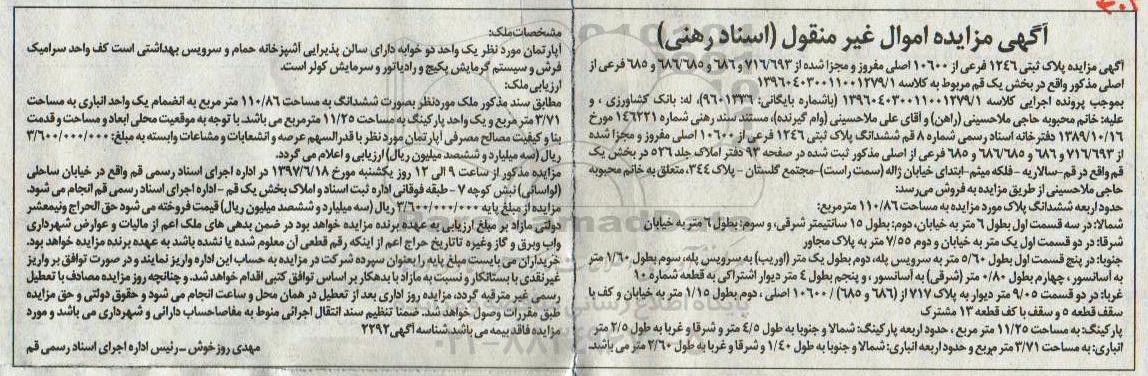 آگهی مزایده اموال غیر منقول (اسناد رهنی)
آگهی مزایده پلاک ثبتی ۱۲۴۶ فرعی از ۱۰۶۰۰ اصلی مفروز و مجزا شده از ۷۱۶/۶۹۳ و ۶۸۶ و ۶۸۶/۶۸۵ و ۶۸۵ فرعی از
اصلی مذکور واقع در بخش یک قم مربوط به کلاسه ۱۳۹۶۰۴۰۳۰۰۱۱۰۰۱۲۷۹/۱
بموجب پرونده اجرایی کلاسه ۱۳۹۶۰۴۰۳۰۰۱۱۰۰۱۲۷۹/۱ (باشماره بایگانی: ۹۶۰۱۳۳۶)، له: بانک کشاورزی ، و
علیه: خانم محبوبه حاجی ملاحسینی (راهن) و آقای علی ملاحسینی (وام گیرنده)، مستند سند رهنی شماره ۱۴۶۲۲۱ مورخ
۱۳۸۹/۱۰/۱۶ دفترخانه اسناد رسمی شماره ۸ قم ششدانگ پلاک ثبتی ۱۲۴۶ فرعی از ۱۰۶۰۰ اصلی مفروز و مجزا شده
از ۷۱۶/۶۹۳ و ۶۸۶ و ۶۸۶/۶۸۵ و ۶۸۵ فرعی از اصلی مذکور ثبت شده در صفحه ۹۳ دفتر املاک جلد ۵۲۶ در بخش یک
قم واقع در قم-سالاریه - فلکه میثم-ابتدای خیابان ژاله (سمت راست)-مجتمع گلستان - پلاک ۳۴۴، متعلق به خانم محبوبه
حاجی ملاحسینی از طریق مزایده به فروش می‌رسد:
حدود اربعه ششدانگ پلاک مورد مزایده به مساحت ۱۱۰/۸۶ مترمربع:
شمالا: در سه قسمت اول بطول ۶ متر به خیابان، دوم: بطول ۱۵ سانتیمتر شرقی، و سوم: بطول ۶ متر به خیابان
شرقا: در دو قسمت اول یک متر به خیابان و دوم ۷/۵۵ متر به پلاک مجاور
جنوبا: در پنج قسمت اول بطول ۵/۶۰ متر به سرویس پله، دوم بطول یک متر (اوریب) به سرویس پله، سوم بطول ۱/۶۰ متر
به آسانسور ، چهارم بطول ۰/۸۰ متر (شرقی) به آسانسور ، و پنجم بطول ۴ متر دیوار اشتراکی به قطعه شماره ۱۰
غربا: در دو قسمت ۹/۰۵ متر دیوار به پلاک ۷۱۷ از (۶۸۶ و ۶۸۵) / ۱۰۶۰۰ اصلی ، دوم بطول ۱/۱۵ متر به خیابان و کف با
سقف قطعه ۵ و سقف با کف قطعه ۱۳ مشترک
پارکینگ: به مساحت ۱۱/۲۵ متر مربع ، حدود اربعه پارکینگ: شمالا و جنوبا به طول ۴/۵ متر و شرقا و غربا به طول ۲/۵ متر
انباری: به مساحت ۳/۷۱ متر مربع و حدود اربعه انباری: شمالا و جنوبا به طول ۱/۴۰ و شرقا و غربا به طول ۲/۶۰ متر می باشد.
مشخصات ملک:
آپارتمان مورد نظر یک واحد دو خوابه دارای سالن پذیرایی آشپزخانه حمام و سرویس بهداشتی است کف واحد سرامیک
فرش و سیستم گرمایش پکیج و رادیاتور و سرمایش کولر است.
ارزیابی ملک:
مطابق سند مذکور ملک موردنظر بصورت ششدانگ به مساحت ۱۱۰/۸۶ متر مربع به انضمام یک واحد انباری به مساحت
۳/۷۱ متر مربع و یک واحد پارکینگ به مساحت ۱۱/۲۵ مترمربع می باشد. با توجه به موقعیت محلی ابعاد و مساحت و قدمت
بنا و کیفیت مصالح مصرفی آپارتمان مورد نظر با قدرالسهم عرصه و انشعابات و مشاعات وابسته به مبلغ: ۳/۶۰۰/۰۰۰/۰۰۰
ریال (سه میلیارد و ششصد میلیون ریال) ارزیابی و اعلام می گردد.
مزایده مذکور از ساعت ۹ الی ۱۲ روز یکشنبه مورخ ۱۳۹۷/۶/۱۸ در اداره اجرای اسناد رسمی قم واقع در خیابان ساحلی
(لواسانی) نبش کوچه ۷ - طبقه فوقانی اداره ثبت اسناد و املاک بخش یک قم - اداره اجرای اسناد رسمی قم انجام می شود.
مزایده از مبلغ پایه ۳/۶۰۰/۰۰۰/۰۰۰ ریال (سه میلیارد و ششصد میلیون ریال) قیمت فروخته می شود حق الحراج ونیم‌عشر
دولتی مازاد بر مبلغ ارزیابی به عهده برنده مزایده خواهد بود در ضمن بدهی های ملک اعم از مالیات و عوارض شهرداری
وآب وبرق و گاز وغیره تا تاریخ حراج اعم از اینکه رقم قطعی آن معلوم شده یا نشده باشد به عهده برنده مزایده خواهد بود.
خریداران می بایست مبلغ پایه را بعنوان سپرده شرکت در مزایده به حساب این اداره واریز نمایند و در صورت توافق بر واریز
غیر نقدی با بستانکار و نسبت به مازاد با بدهکار بر اساس توافق کتبی اقدام خواهد شد. و چنانچه روز مزایده مصادف با تعطیل
رسمی غیر مترقبه گردد، مزایده روز اداری بعد از تعطیل در همان محل و ساعت انجام می شود و حقوق دولتی و حق مزایده
طبق مقررات وصول خواهد شد. ضمنا تنظیم سند انتقال اجرائی منوط به مفاصاحساب دارائی و شهرداری می باشد و مورد
مزایده فاقد بیمه می باشد.شناسه آگهی۲۲۹۲
مهدی روزخوش - رئیس اداره اجرای اسناد رسمی قم